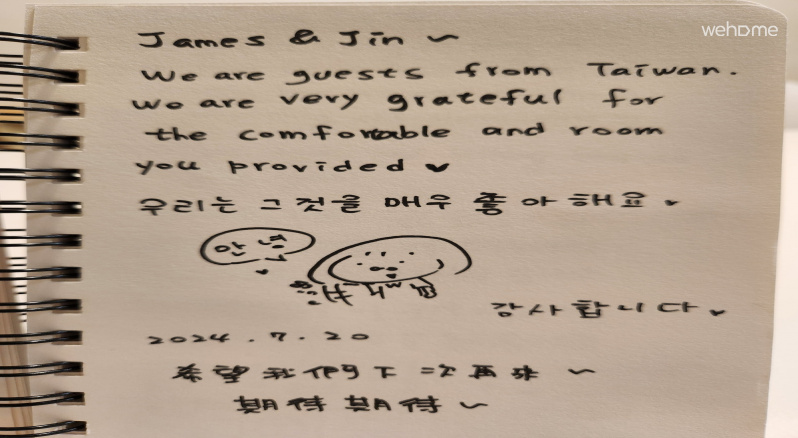 wehome
James & Jin ~
We are guests from Taiwan.
We are very grateful for
the comfortable and room
you provided ♥
우리는 그것을 매우 좋아해요 ♥
안녕
감사합니다 ♥
2024.7.20
希望我們下次再來 ~
期待期待 ~